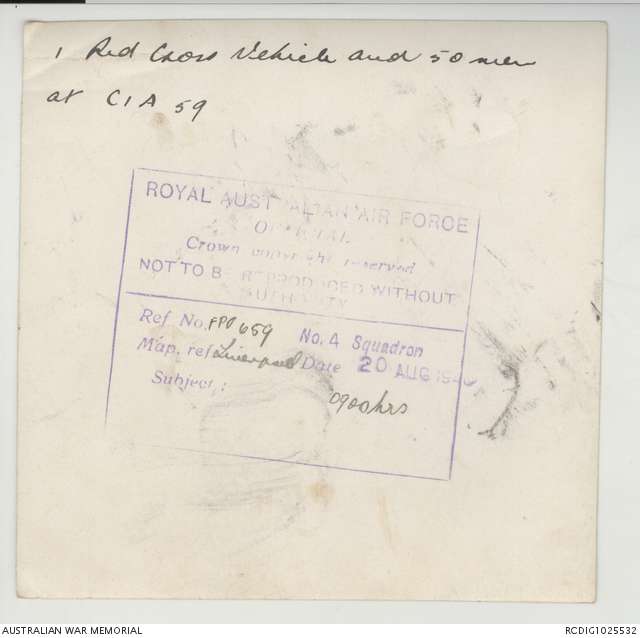 1 Red Cross Vehicle and 50 men
at C1A 59
ROYAL AUSTRALIAN AIR FORCE
OFFICIAL
Crown copyright reserved
NOT TO BE REPRODUCED WITHOUT
AUTHORITY
Ref No. FPO 659 No. 4 Squadron
Map. ref. Liverpool Date 20 AUG 194
Subject: 0900hrs
AUSTRALIAN WAR MEMORIAL RCDIG1025532